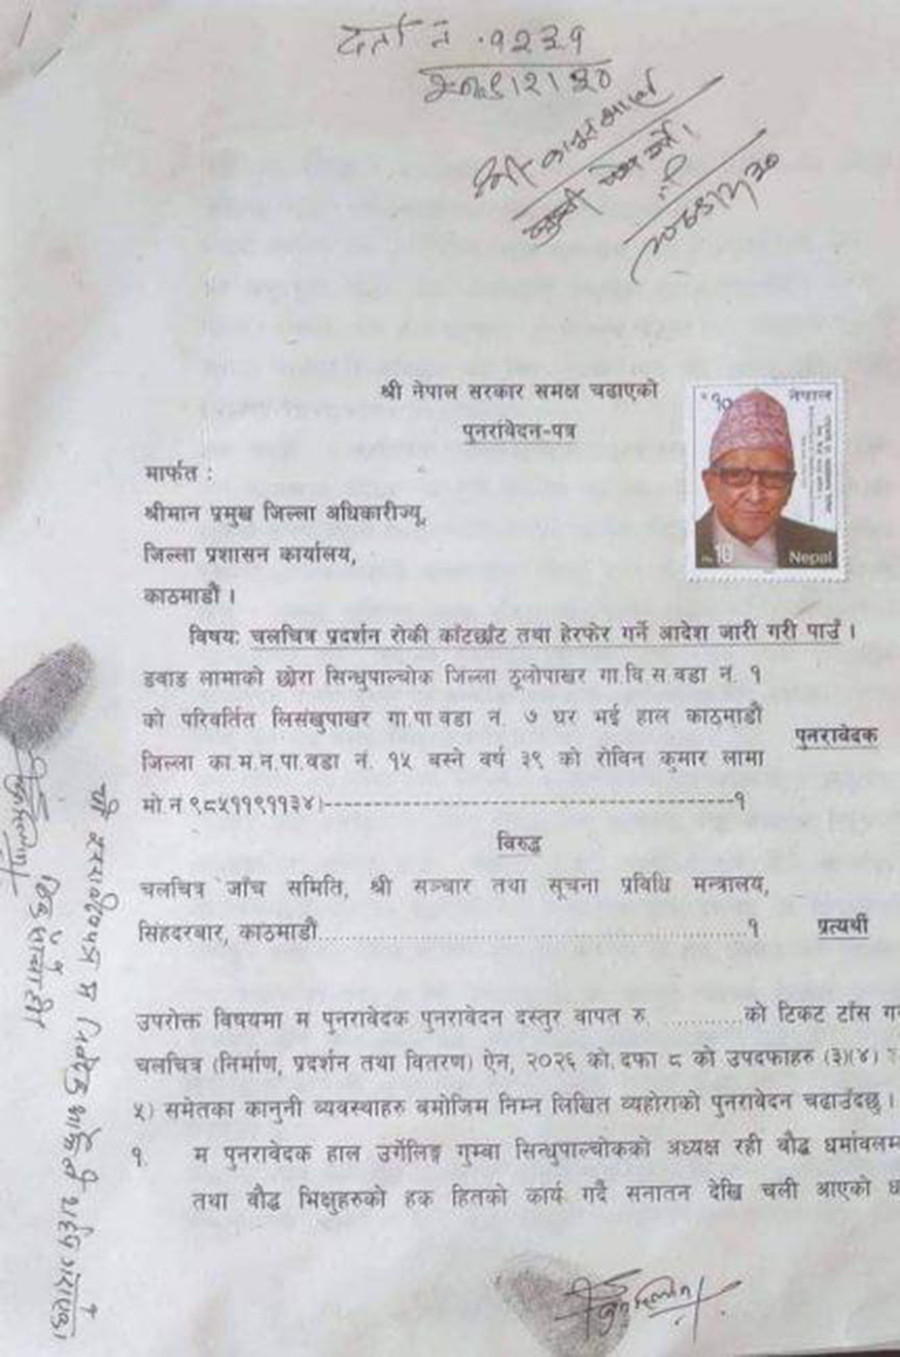 दर्ता नं. १२३१
श्री नेपाल सरकार समक्ष चढाएको
पुनरावेदन-पत्र
रु १०
नेपाल
Rs. 10
Nepal
मार्फत :
श्रीमान प्रमुख जिल्ला अधिकारीज्यू,
जिल्ला प्रशासन कार्यालय,
काठमाडौं ।
विषय: चलचित्र प्रदर्शन रोकी काँटछाँट तथा हेरफेर गर्ने आदेश जारी गरी पाउँ ।
डवाड लामाको छोरा सिन्धुपाल्चोक जिल्ला ठूलोपाखर गा.वि.स.वडा नं. १
को परिवर्तित लिसंखुपाखर गा.पा.वडा नं. ७ घर भई हाल काठमाडौं
जिल्ला का.म.न.पा.वडा नं. १५ बस्ने वर्ष ३९ को रोविन कुमार लामा
मो.नं ९८५११९११३४)---------------------------------------१
पुनरावेदक
विरुद्ध
चलचित्र जाँच समिति, श्री सञ्चार तथा सूचना प्रविधि मन्त्रालय,
सिंहदरबार, काठमाडौं....................................................१
प्रत्यर्थी
उपरोक्त विषयमा म पुनरावेदक पुनरावेदन दस्तुर वापत रु. ............को टिकट टाँस
चलचित्र (निर्माण, प्रदर्शन तथा वितरण) ऐन, २०२६ को दफा ८ को उपदफाहरु (३)(४)
५) समेतका कानुनी व्यवस्थाहरु बमोजिम निम्न लिखित व्यहोराको पुनरावेदन चढाउँदछु ।
१. म पुनरावेदक हाल उर्गेलिङ्ग गुम्बा सिन्धुपाल्चोकको अध्यक्ष रही बौद्ध
तथा बौद्ध भिक्षुहरुको हक हितको कार्य गर्दै सनातन देखि चली आएको